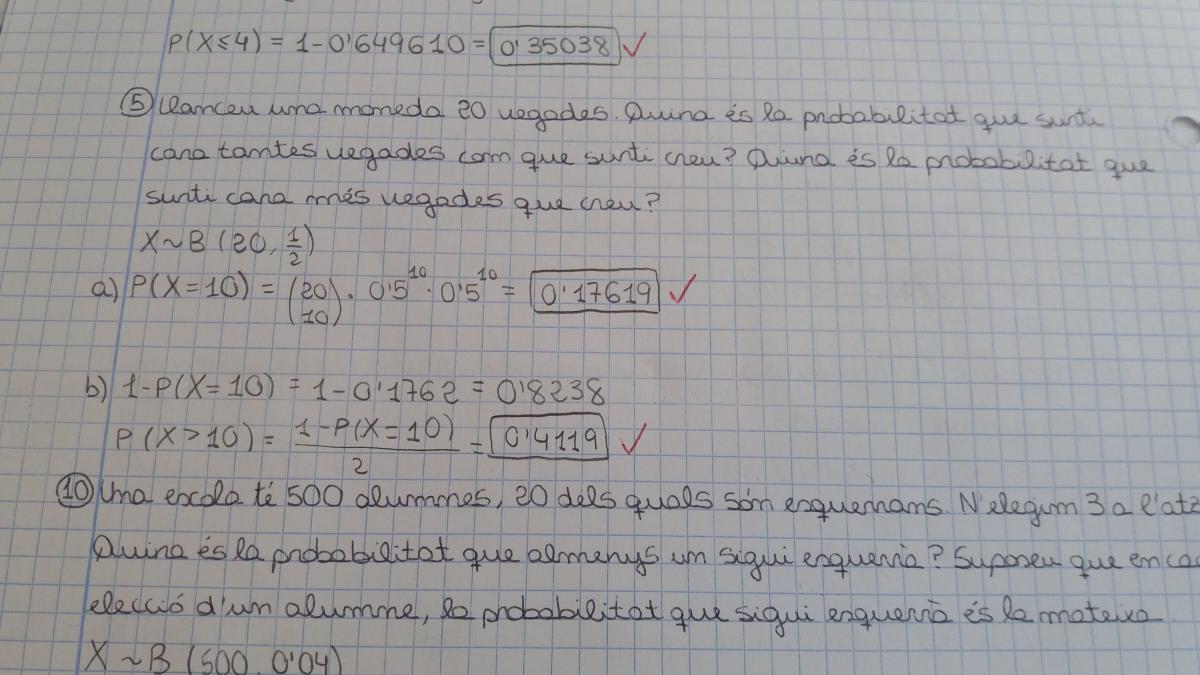 P(X≤4) = 1-0'649610 = 0'35038 ✓
⑤ Llanceu una moneda 20 vegades. Quina és la probabilitat que surti
cara tantes vegades com que surti creu? Quina és la probabilitat que
surti cara més vegades que creu?
X~B (20, 1/2)
a) P(X=10) = (20 10) · 0'5^10 · 0'5^10 = 0'17619 ✓
b) 1-P(X=10) = 1-0'1762 = 0'8238
P(X>10) = 1-P(X=10)/2 = 0'4119 ✓
⑩ Una escola té 500 alumnes, 20 dels quals són esquerrans. N'elegim 3 a l'atz
Quina és la probabilitat que almenys un sigui esquerrà? Suposeu que en ca
elecció d'un alumne, la probabilitat que sigui esquerrà és la mateixa
X~B (500, 0'04)